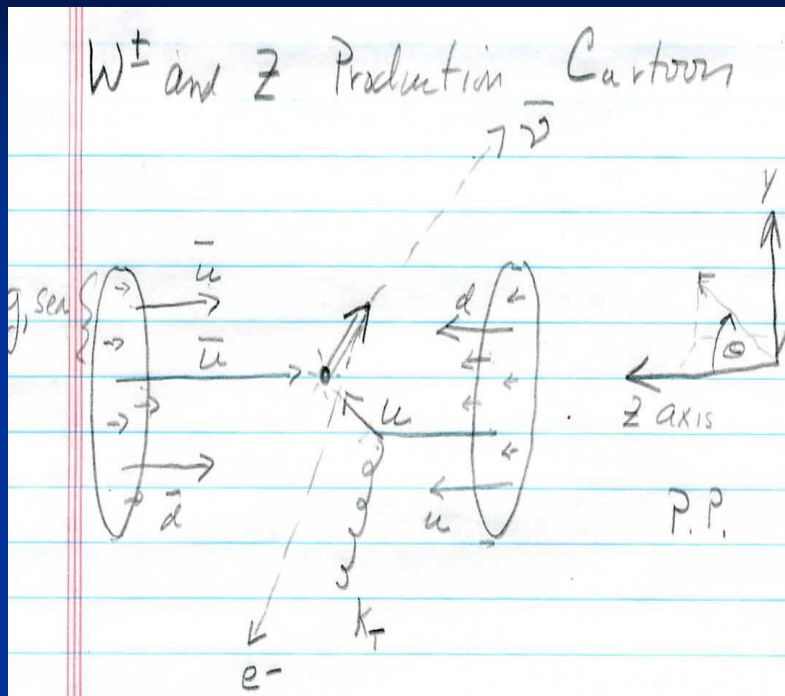 W± and Z Production Cartoon
ν̄
y
g, sea {
ū
d
ū
θ
u
Z axis
d̄
u
P.P.
k_T
e-